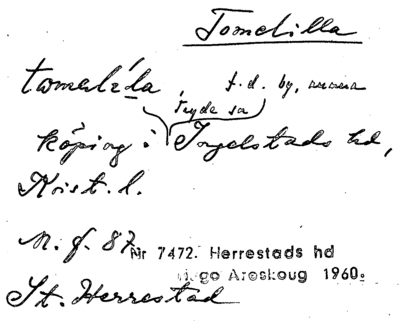 Tomelilla
tomelila, f.d. by, numera
Tryde sn
köping i Ingelstads hd,
Krist. l.
M. f. 87
Nr 7472. Herrestads hd
Hugo Areskoug 1960.
St. Herrestad